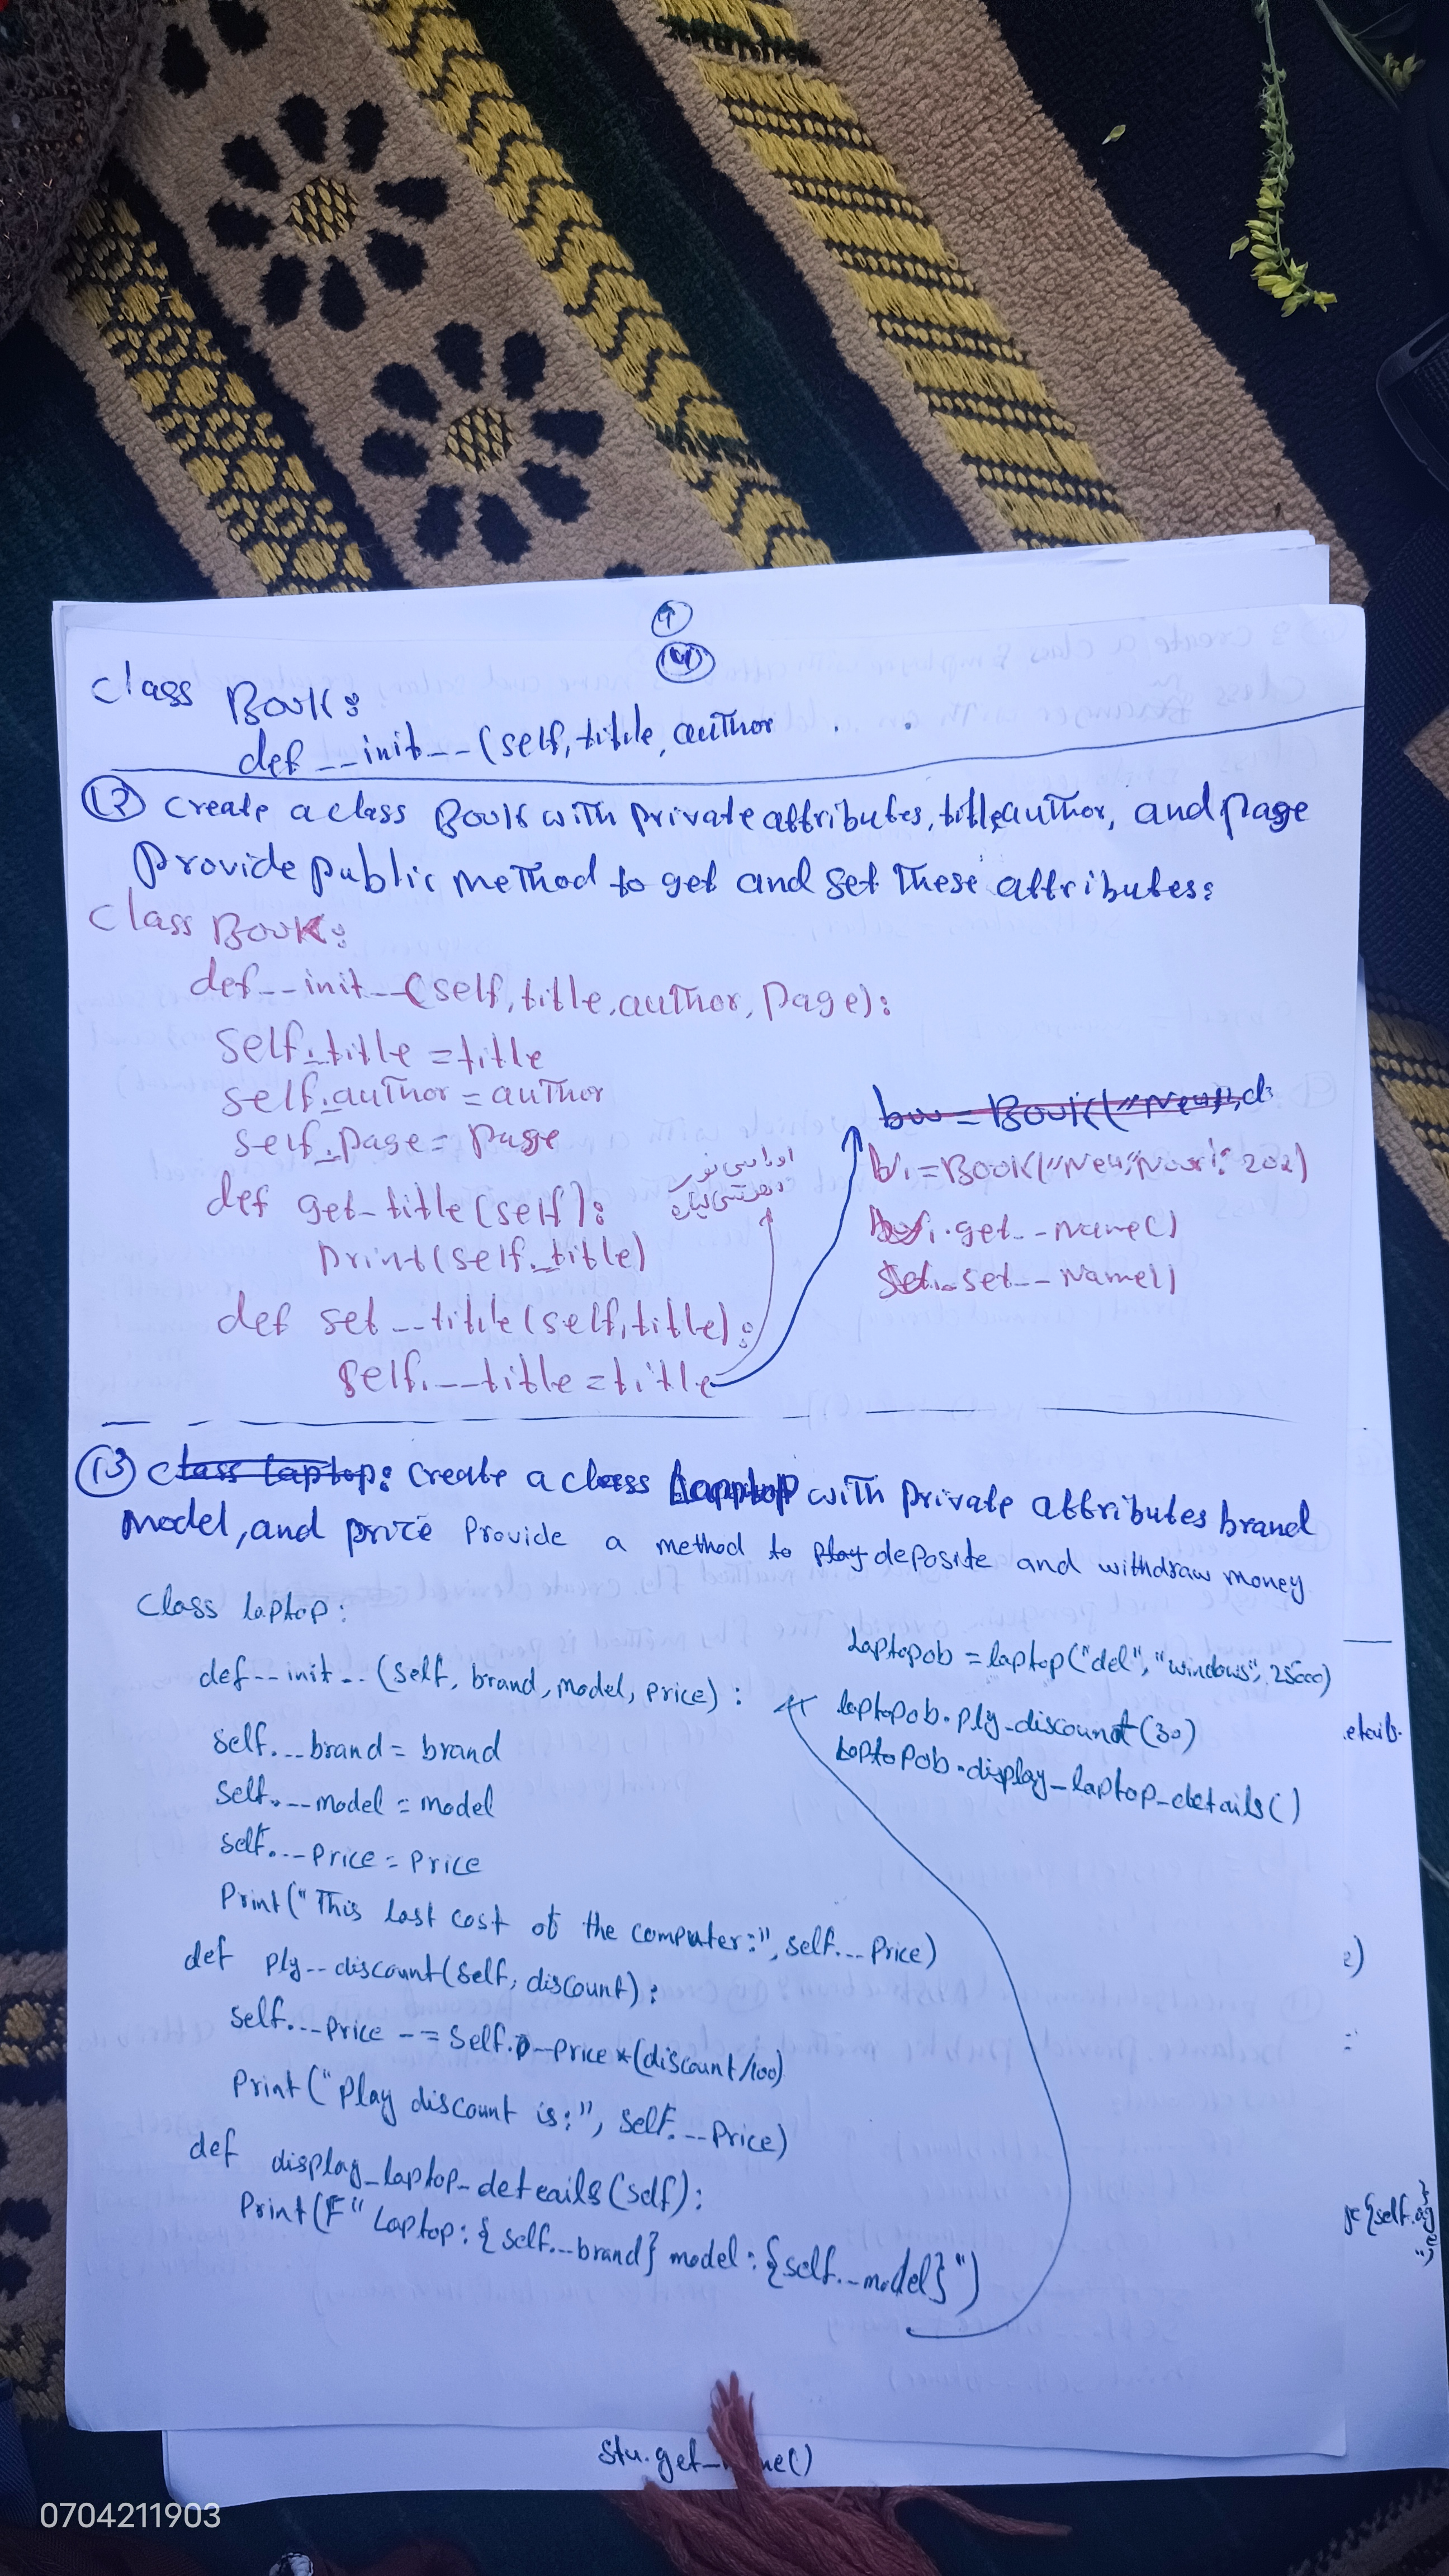 class Book:
def __init__(self, titile, author
(12) Create a class Book with private attributes, title, author, and page
Provide public method to get and set These attributes:
class Book:
def __init__(self, title, author, page):
self._title = title
self._author = author
self._page = page
def get_title(self):
print(self._title)
def set__titile(self, title):
self.__title = title
b1 = Book("New", "Nouri", 202)
get__Name()
set__Name()
(13) class laptop: Create a class Laptop with private attributes brand
Model, and price Provide a method to play deposite and withdraw money
Class laptop:
def __init__(self, brand, model, price):
self.__brand = brand
self.__model = model
self.__price = price
Print("This last cost of the computer:", self.__price)
def ply__discount(self, discount):
self.__price -= self.__price*(discount/100)
Print("Play discount is:", self.__price)
def display_laptop_deteails(self):
Print(F"Laptop: {self.__brand} model: {self.__model}")
Laptopob = laptop("del", "windows", 25000)
laptopob.ply_discount(30)
Loptopob.display_laptop_details()
etails.
e)
:
{self.ag
")
stu.get_
me()
0704211903